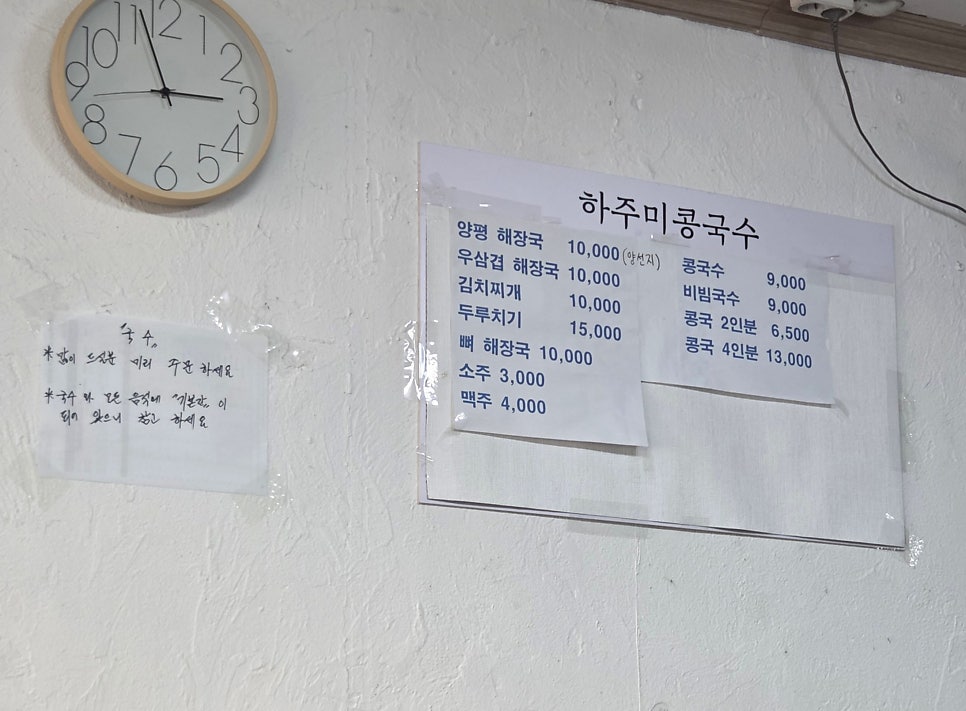 11 12 1
10 2
9 3
8 4
7 6 5
하주미콩국수
양평 해장국 10,000 (양선지)
우삼겹 해장국 10,000
김치찌개 10,000
두루치기 15,000
뼈 해장국 10,000
소주 3,000
맥주 4,000
콩국수 9,000
비빔국수 9,000
콩국 2인분 6,500
콩국 4인분 13,000
"국수"
*많이 드실분 미리 주문하세요
*국수 와 모든 음식에 "기본간"이
되어 있으니 참고 하세요